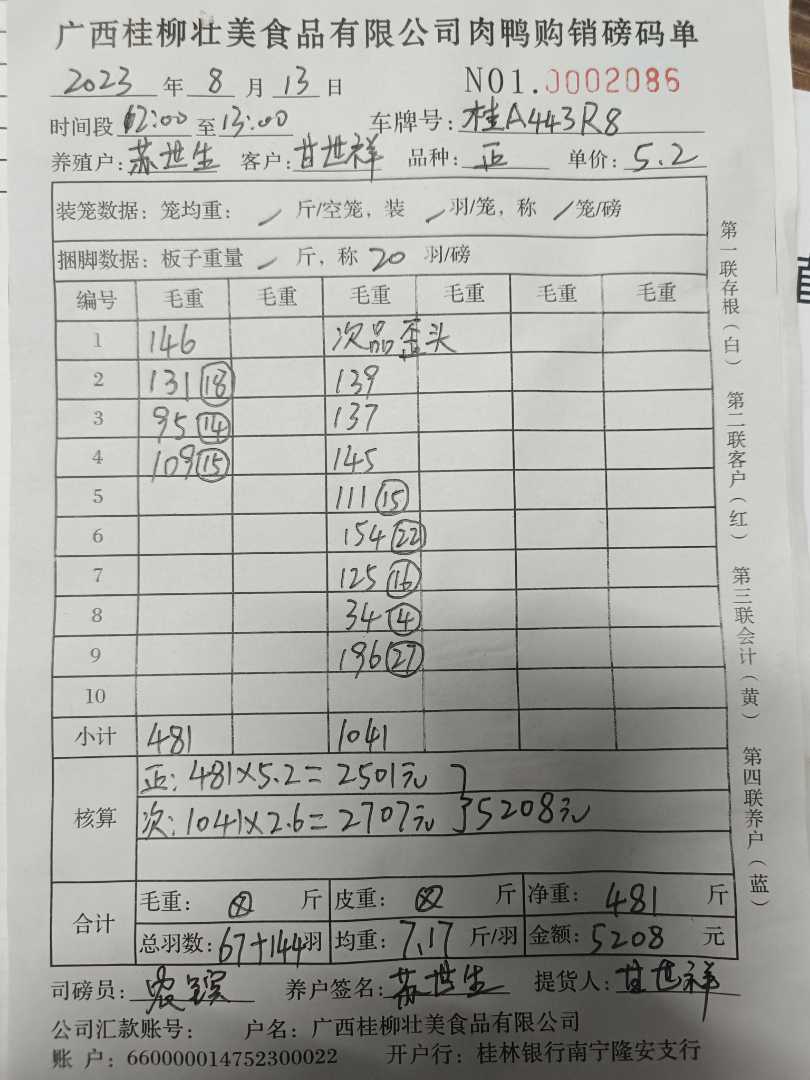 广西桂柳壮美食品有限公司肉鸭购销磅码单
2023 年 8 月 13 日 NO1.0002086
时间段 12:00 至 13:00 车牌号: 桂A443R8
养殖户: 苏世生 客户: 甘世祥 品种: 正 单价: 5.2
装笼数据: 笼均重: / 斤/空笼, 装 / 羽/笼, 称 / 笼/磅
捆脚数据: 板子重量 / 斤, 称 20 羽/磅
编号 毛重 毛重 毛重 毛重 毛重 毛重
1 146 次品歪头
2 131 (18) 139
3 95 (14) 137
4 109 (15) 145
5 111 (15)
6 154 (22)
7 125 (16)
8 34 (4)
9 196 (27)
10
小计 481 1041
核算
正: 481×5.2=2501元
次: 1041×2.6=2707元 } 5208元
合计
毛重: ⊗ 斤 皮重: ⊗ 斤 净重: 481 斤
总羽数: 67+144 羽 均重: 7.17 斤/羽 金额: 5208 元
司磅员: 养户签名: 苏世生 提货人: 甘世祥
公司汇款账号: 户名: 广西桂柳壮美食品有限公司
账 户: 660000014752300022 开户行: 桂林银行南宁隆安支行
第一联存根(白) 第二联客户(红) 第三联会计(黄) 第四联养户(蓝)